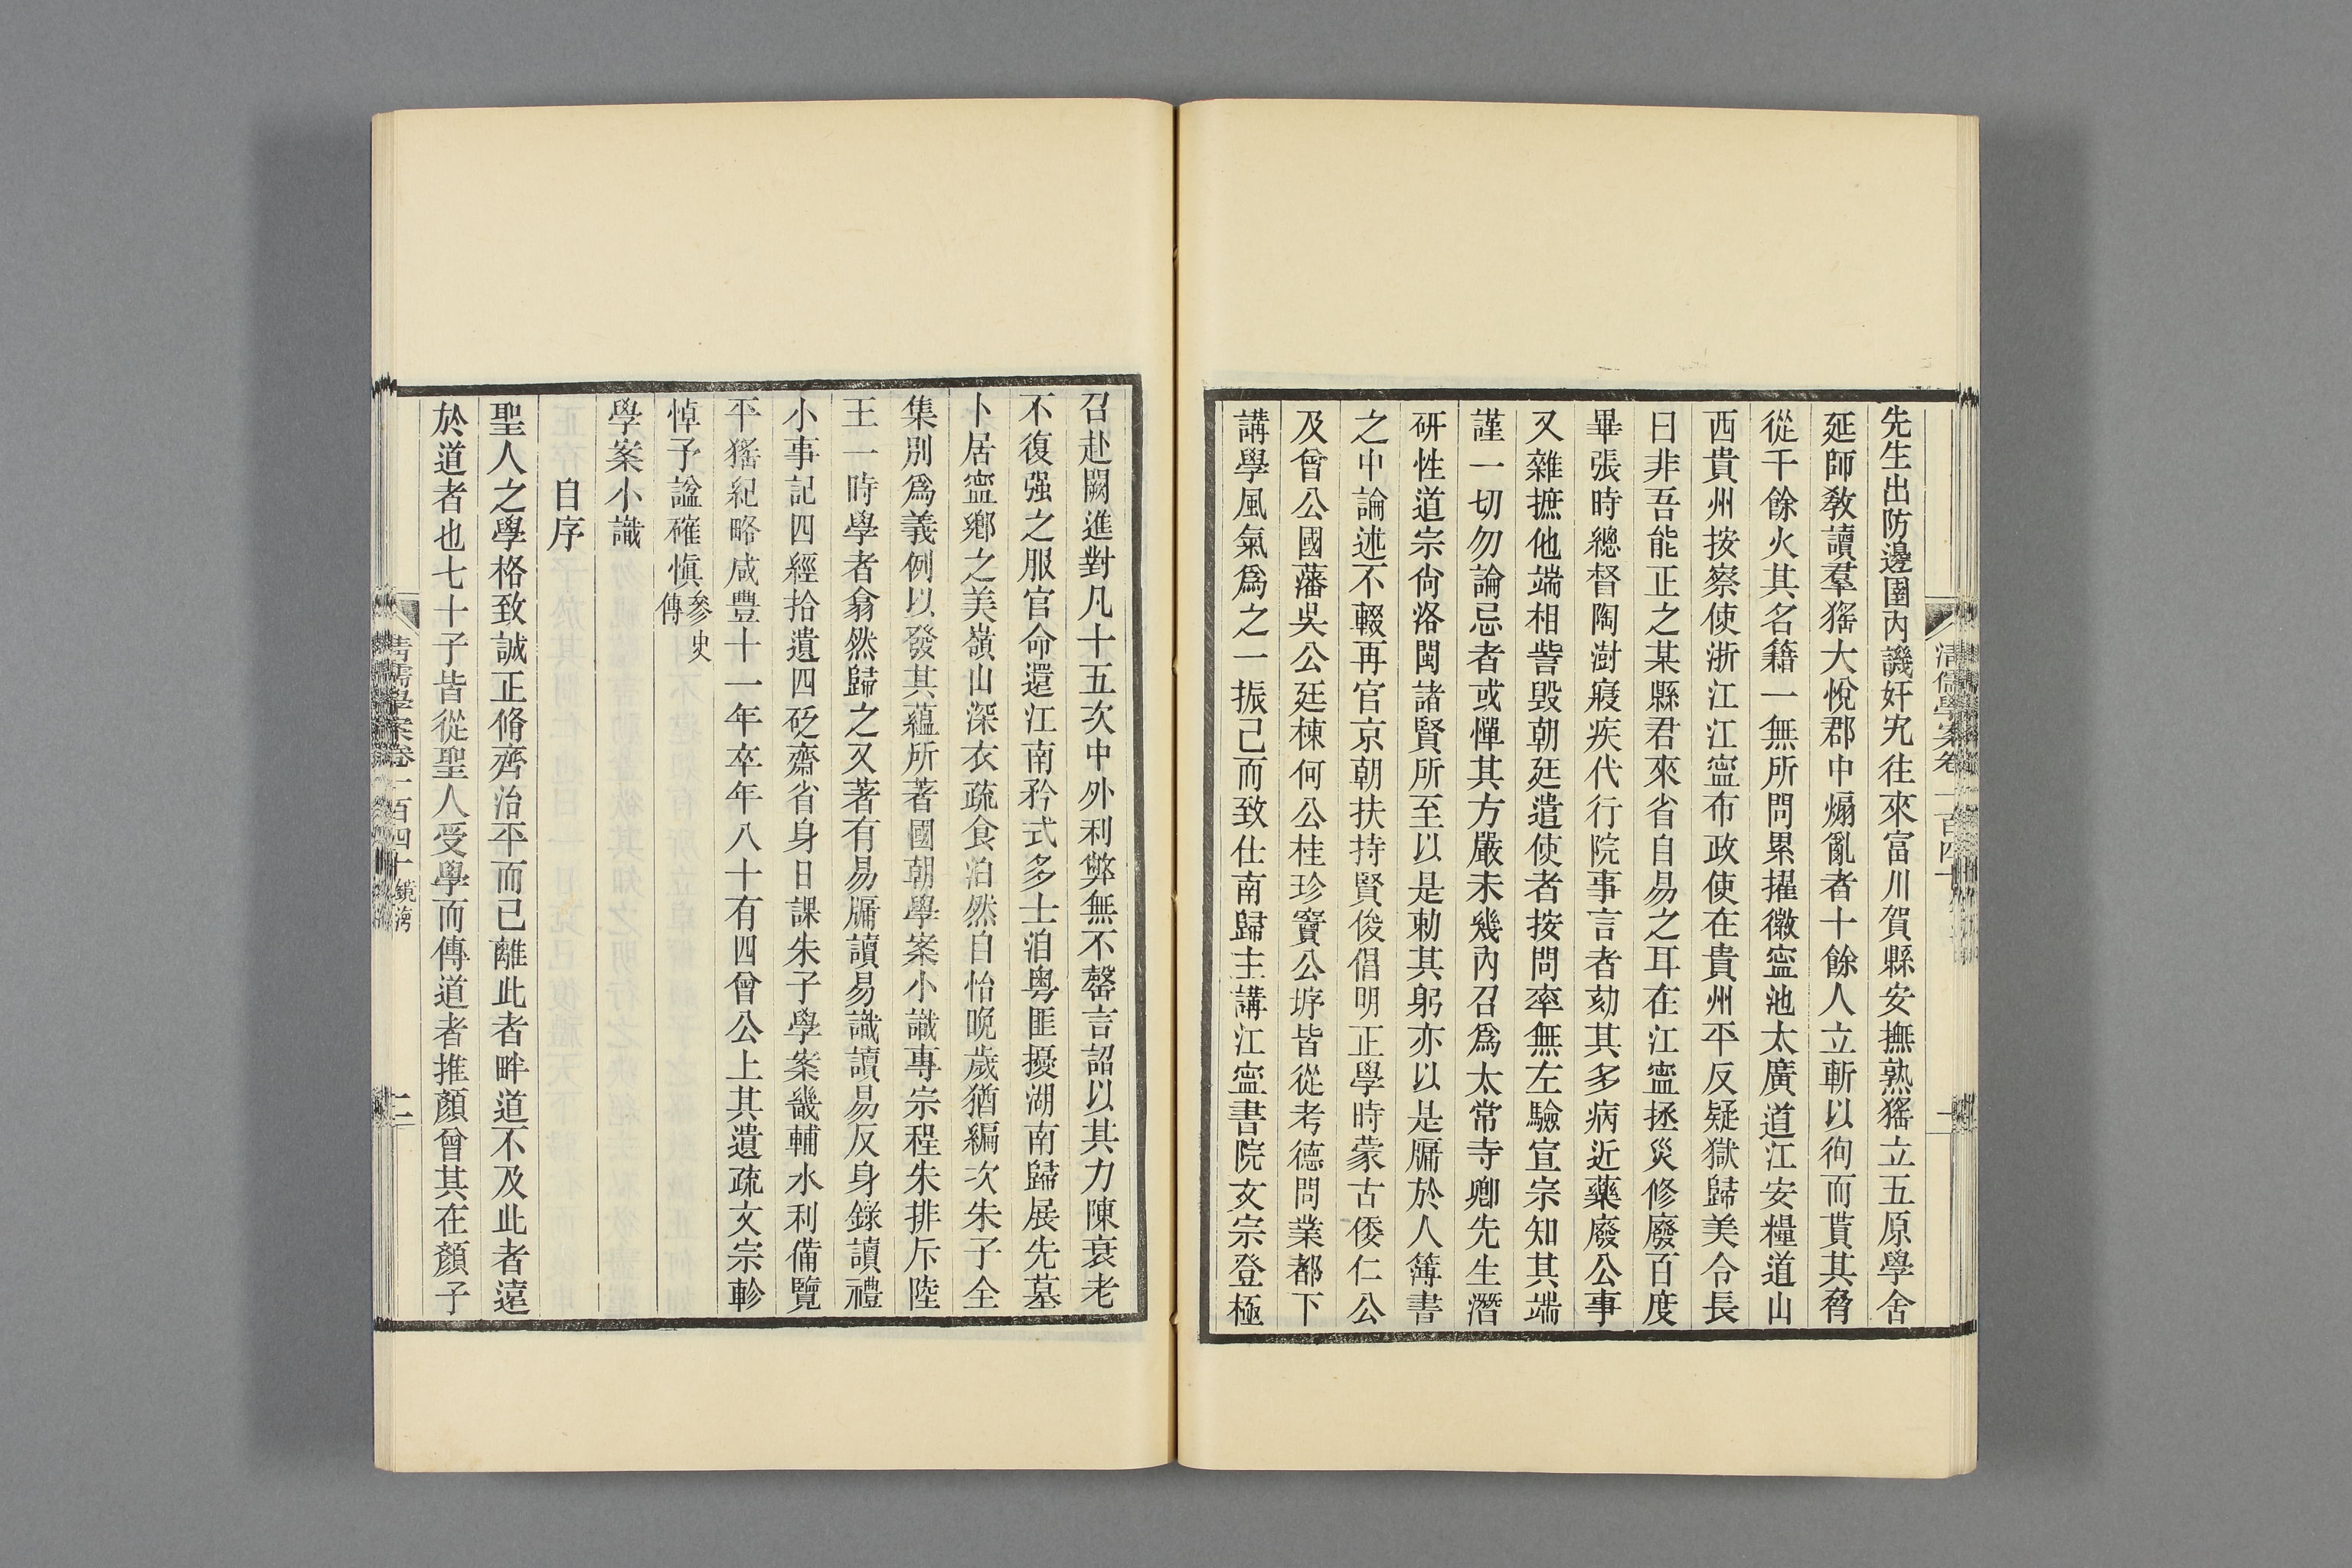 先生出防邊圉內譏奸宄往來富川賀縣安撫熟猺立五原學舍
延師敎讀羣猺大悅郡中煽亂者十餘人立斬以徇而貰其脅
從千餘火其名籍一無所問累擢徽寍池太廣道江安糧道山
西貴州按察使浙江江寍布政使在貴州平反疑獄歸美令長
曰非吾能正之某縣君來省自易之耳在江寍拯災修廢百度
畢張時總督陶澍寢疾代行院事言者劾其多病近藥廢公事
又雜摭他端相訾毀朝廷遣使者按問率無左驗宣宗知其端
謹一切勿論忌者或憚其方嚴未幾內召爲太常寺卿先生潛
硏性道宗尙洛閩諸賢所至以是勅其躬亦以是牖於人簿書
之中論述不輟再官京朝扶持賢俊倡明正學時蒙古倭仁公
及曾公國藩吳公廷棟何公桂珍竇公垿皆從考德問業都下
講學風氣爲之一振已而致仕南歸主講江寍書院文宗登極
清儒學案卷一百四十
召赴闕進對凡十五次中外利弊無不罄言詔以其力陳衰老
不復强之服官命還江南矜式多士洎粤匪擾湖南歸展先墓
卜居寍鄉之美嶺山深衣疏食泊然自怡晩歲猶編次朱子全
集別爲義例以發其蘊所著國朝學案小識專宗程朱排斥陸
王一時學者翕然歸之又著有易牖讀易識讀易反身錄讀禮
小事記四經拾遺四砭齋省身日課朱子學案畿輔水利備覽
平猺紀略咸豐十一年卒年八十有四曾公上其遺疏文宗軫
悼予諡確愼參史傳
學案小識
自序
聖人之學格致誠正脩齊治平而已離此者畔道不及此者遠
於道者也七十子皆從聖人受學而傳道者推顏曾其在顏子
清儒學案卷一百四十 鏡海 二